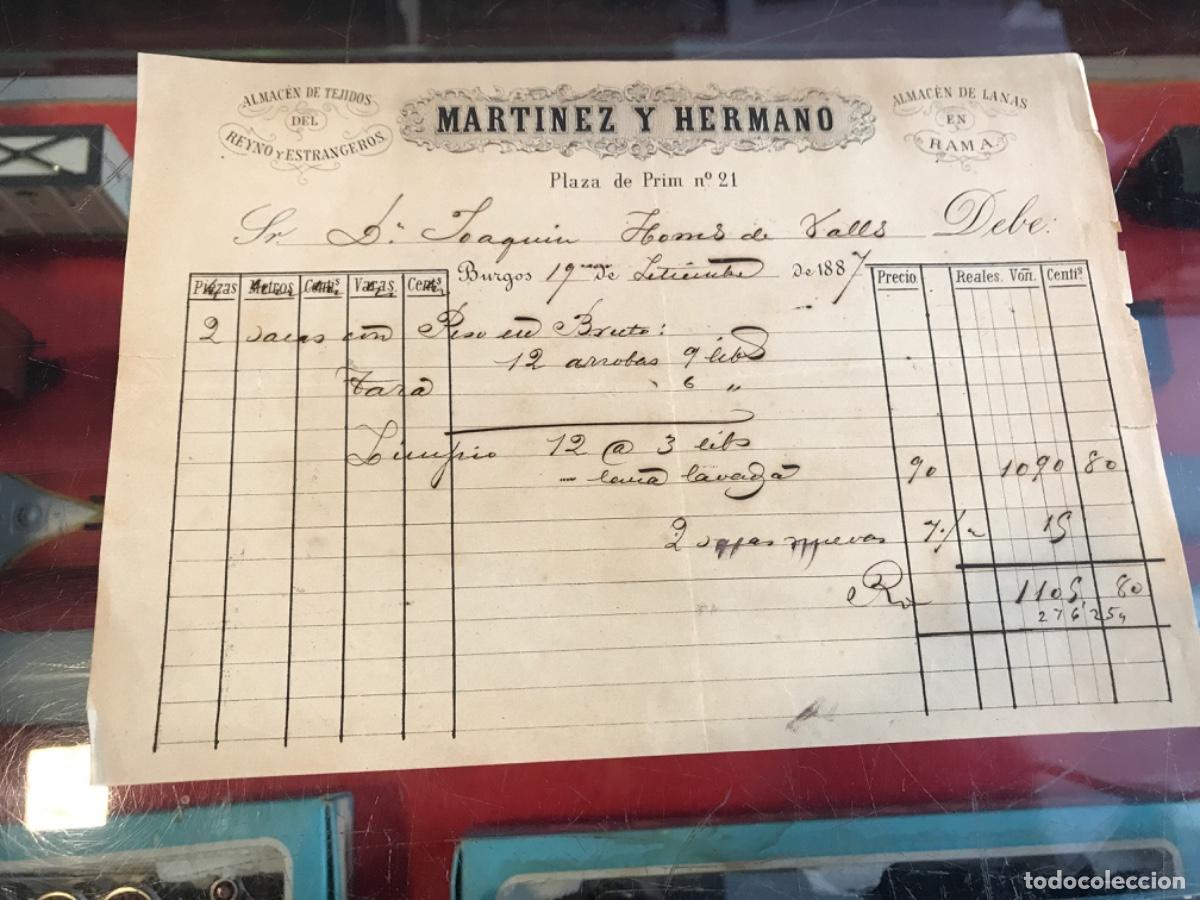 ALMACÉN DE TEJIDOS
DEL
REYNO Y ESTRANGEROS.
MARTINEZ Y HERMANO
ALMACÉN DE LANAS
EN
RAMA.
Plaza de Prim nº 21
Sr. Dn. Joaquin Homs de Valls Debe:
Burgos 19 de Setiembre de 1887
Piezas Metros Centis Varas Cents Precio Reales. Von. Centis
2 sacas con Peso en Bruto:
12 arrobas 9 libs
Tara 6 „
Limpio 12 @ 3 libs
lana lavada 90 1090 80
2 sacas nuevas 7 15
Rn 1105 80
276'25
todocoleccion